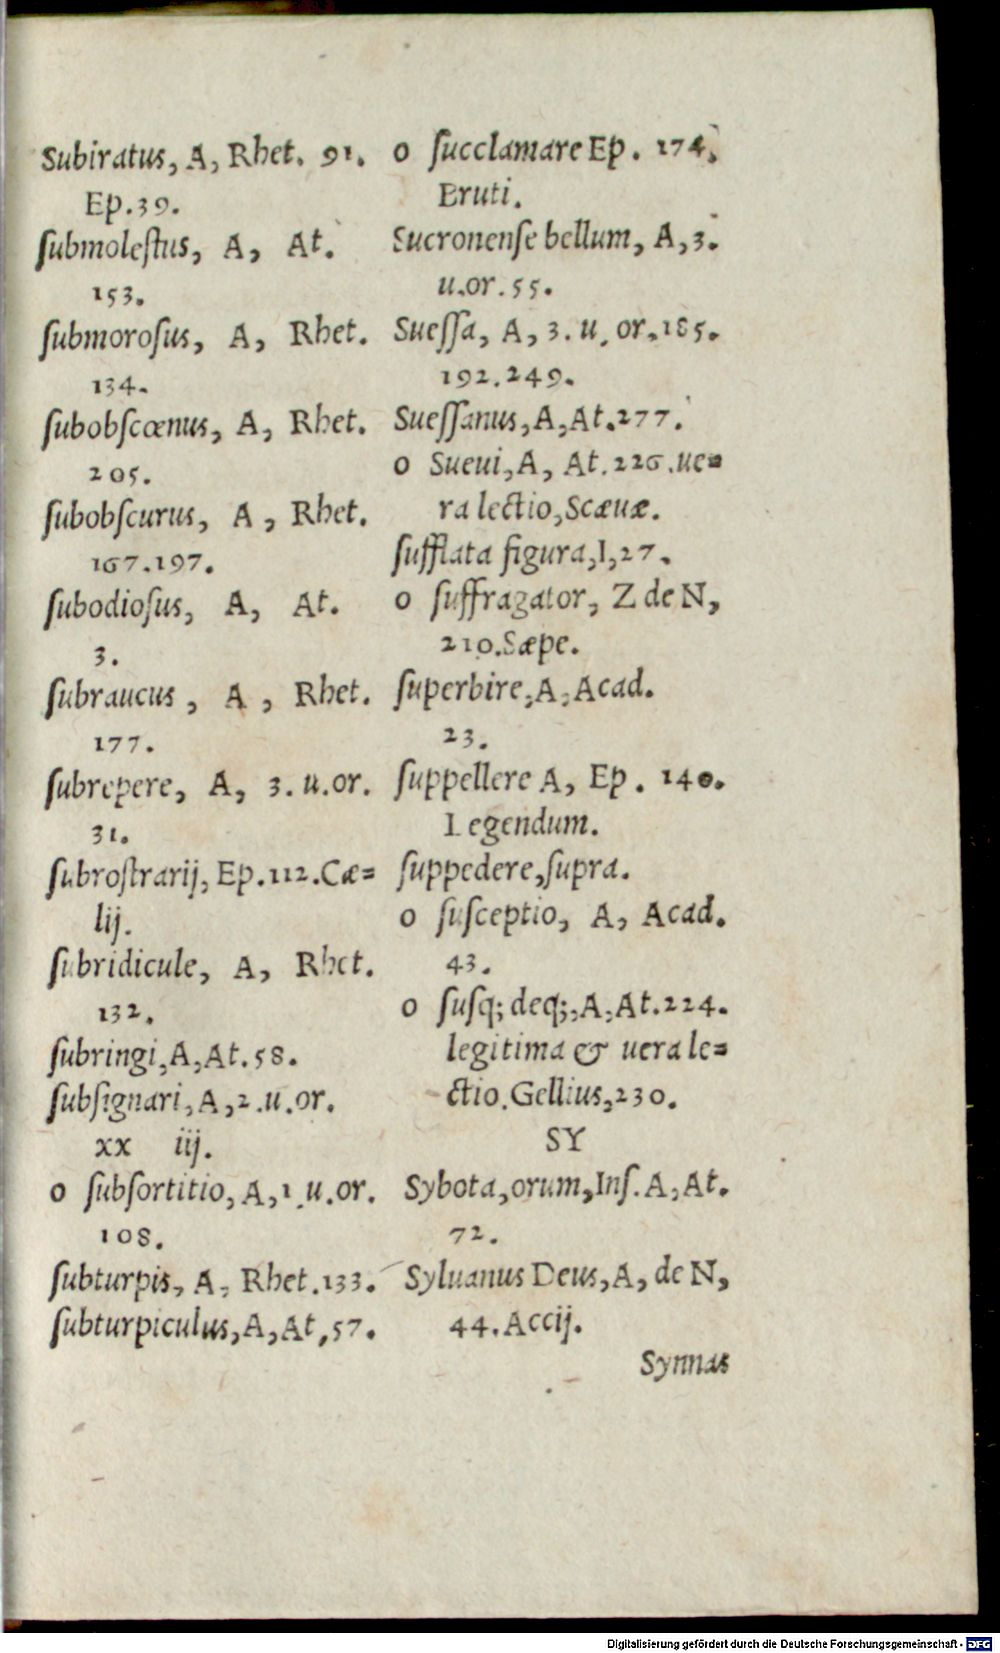 Subiratus, A, Rhet. 91.
Ep. 39.
ſubmoleſtus, A, At.
153.
ſubmoroſus, A, Rhet.
134.
ſubobſcœnus, A, Rhet.
205.
ſubobſcurus, A, Rhet.
167.197.
ſubodioſus, A, At.
3.
ſubraucus, A, Rhet.
177.
ſubrepere, A, 3. u.or.
31.
ſubroſtrarij, Ep.112.Cæ=
lij.
ſubridicule, A, Rhet.
132.
ſubringi,A,At.58.
ſubſignari,A,2.u.or.
xx iij.
o ſubſortitio,A,1.u.or.
108.
ſubturpis, A, Rhet.133.
ſubturpiculus,A,At,57.
o ſucclamare Ep. 174.
Bruti.
Sucronenſe bellum, A,3.
u.or.55.
Sueſſa, A, 3. u. or.185.
192.249.
Sueſſanus,A,At.277.
o Sueui,A, At.226.ue=
ra lectio,Scæuæ.
ſufflata figura,I,27.
o ſuffragator, Z de N,
210.Sæpe.
ſuperbire,A,Acad.
23.
ſuppellere A, Ep. 140.
Legendum.
ſuppedere,ſupra.
o ſuſceptio, A, Acad.
43.
o ſuſq; deq;,A,At.224.
legitima & uera le=
ctio.Gellius,230.
SY
Sybota,orum,Inſ.A,At.
72.
Syluanus Deus,A, de N,
44.Accij.
Synnas
Digitalisierung gefördert durch die Deutsche Forschungsgemeinschaft - DFG